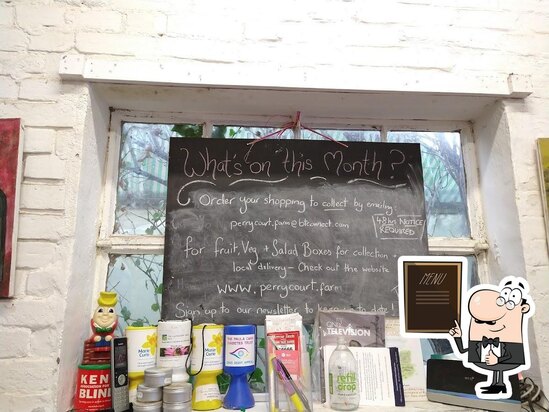 What's on this Month?
Order your shopping to collect by emailing
perrycourt.farm@btconnect.com
48hr NOTICE
REQUIRED
for fruit, Veg + Salad Boxes for collection +
local delivery - Check out the website
www.perrycourt.farm
Sign up to our newsletter to keep up to date!
MENU
TELEVISION
KENT
BLIND
Cure
THE PAULA CARR
DIABETES TRUST
refill
drop